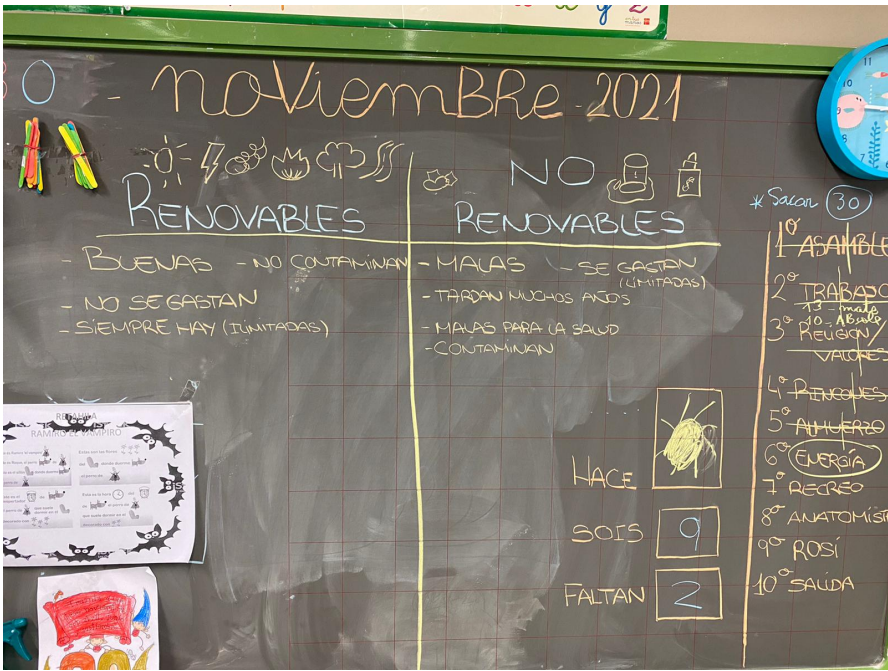 30 - noviembre - 2021
RENOVABLES
- BUENAS - NO CONTAMINAN
- NO SE GASTAN
- SIEMPRE HAY (ILIMITADAS)
NO
RENOVABLES
- MALAS - SE GASTAN
(LIMITADAS)
- TARDAN MUCHOS AÑOS
- MALAS PARA LA SALUD
- CONTAMINAN
HACE
SOIS 9
FALTAN 2
* Sacar 30
1º ASAMBLE
2º TRABAJO
13 - mate
3º RELIGIÓN/
VALORES
4º RINCONES
5º ALMUERZO
6º ENERGÍA
7º RECREO
8º ANATOMIST
9º ROSI
10º SALIDA
RETAHILA
RAMIRO EL VAMPIRO
y z
11
9
8
7